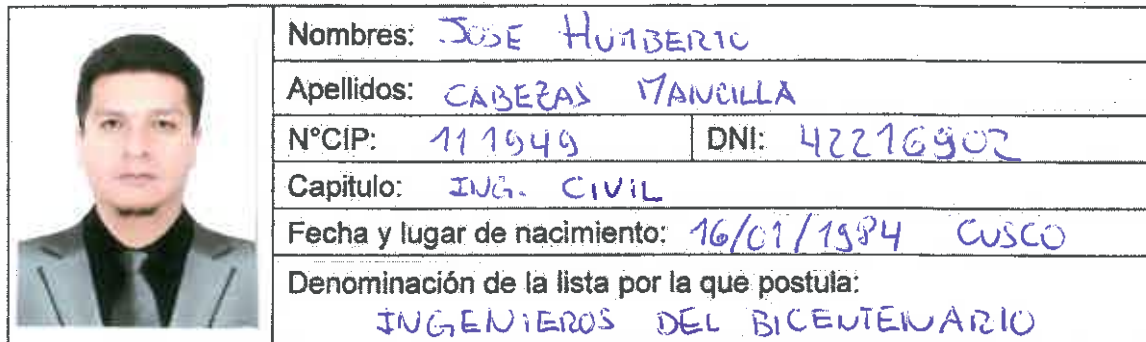 Nombres: JOSE HUMBERTO
Apellidos: CABEZAS MANCILLA
N°CIP: 111949 DNI: 42216902
Capitulo: ING. CIVIL
Fecha y lugar de nacimiento: 16/01/1984 CUSCO
Denominación de la lista por la que postula:
INGENIEROS DEL BICENTENARIO